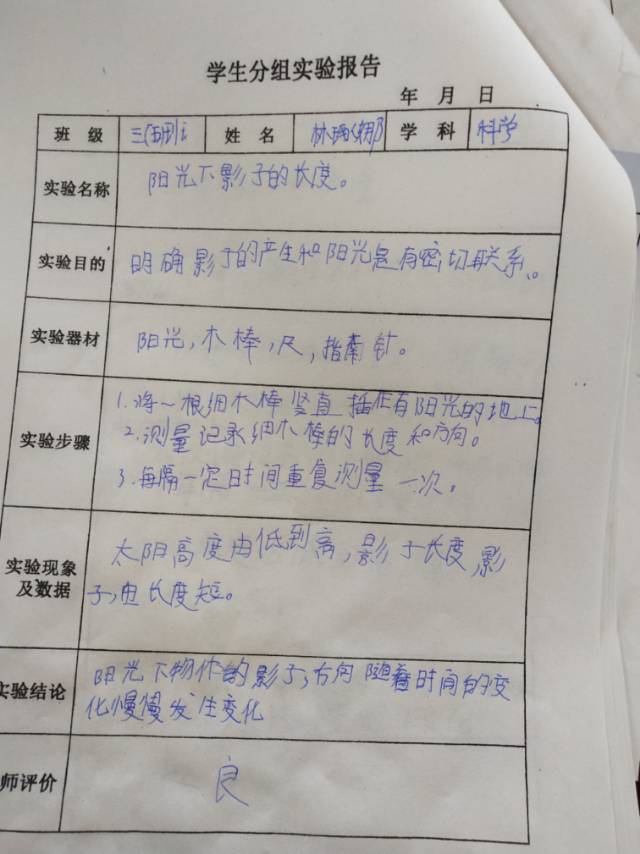 学生分组实验报告
年 月 日
班 级 三 姓 名 林 学 科 科学
实验名称 阳光下影子的长度。
实验目的 明确影子的产生和阳光总有密切联系。
实验器材 阳光,木棒,尺,指南针。
实验步骤
1.将一根细木棒竖直插在有阳光的地上。
2.测量记录细木棒的长度和方向。
3.每隔一定时间重复测量一次。
实验现象
及数据
太阳高度由低到高,影子长度,影
子由长度短。
实验结论
阳光下物体的影子方向随着时间的变
化慢慢发生变化
师评价 良